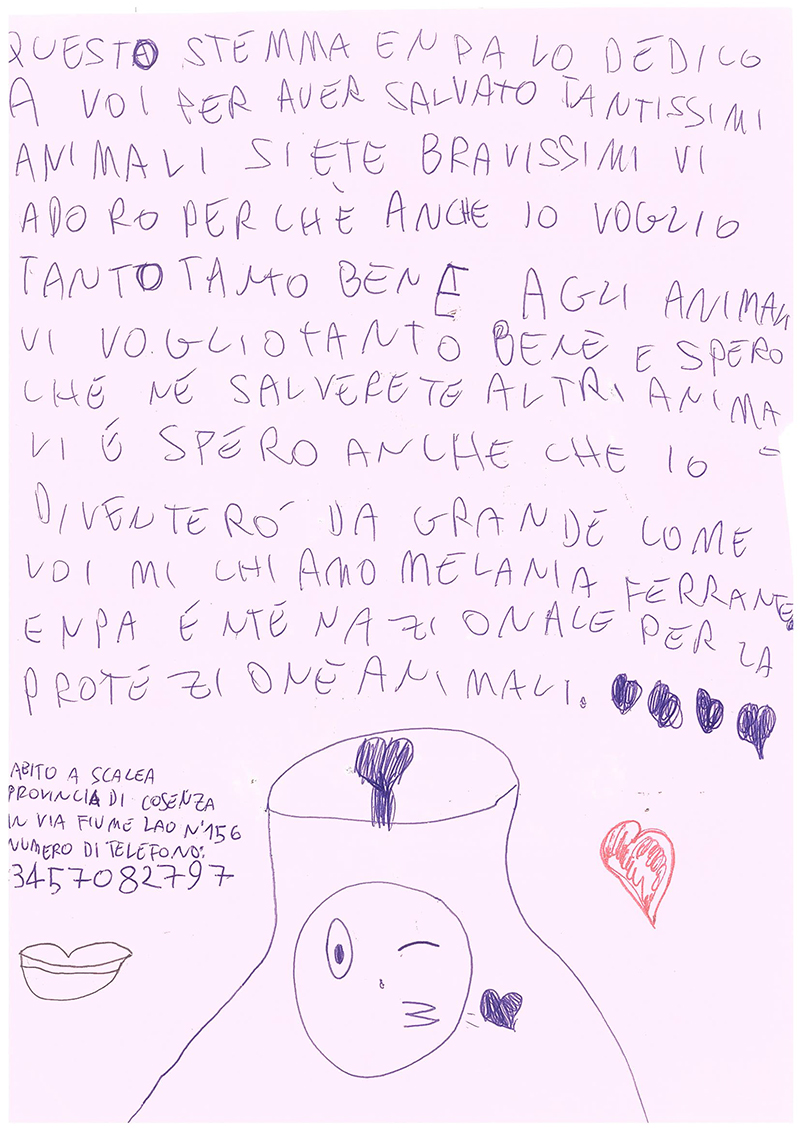 QUESTO STEMMA ENPA LO DEDICO
A VOI PER AVER SALVATO TANTISSIMI
ANIMALI SIETE BRAVISSIMI VI
ADORO PERCHÈ ANCHE IO VOGLIO
TANTO TAMTO BENE AGLI ANIMALI
VI VOGLIO TANTO BENE E SPERO
CHE NE SALVERETE ALTRI ANIMA
LI É SPERO ANCHE CHE IO =
DIVENTERO' DA GRANDE COME
VOI MI CHIAMO MELANIA FERRANTE
ENPA ÉNTE NAZIONALE PER LA
PROTEZIONE ANIMALI.
ABITO A SCALEA
PROVINCIA DI COSENZA
IN VIA FIUME LAO N°156
NUMERO DI TELEFONO:
3457082797